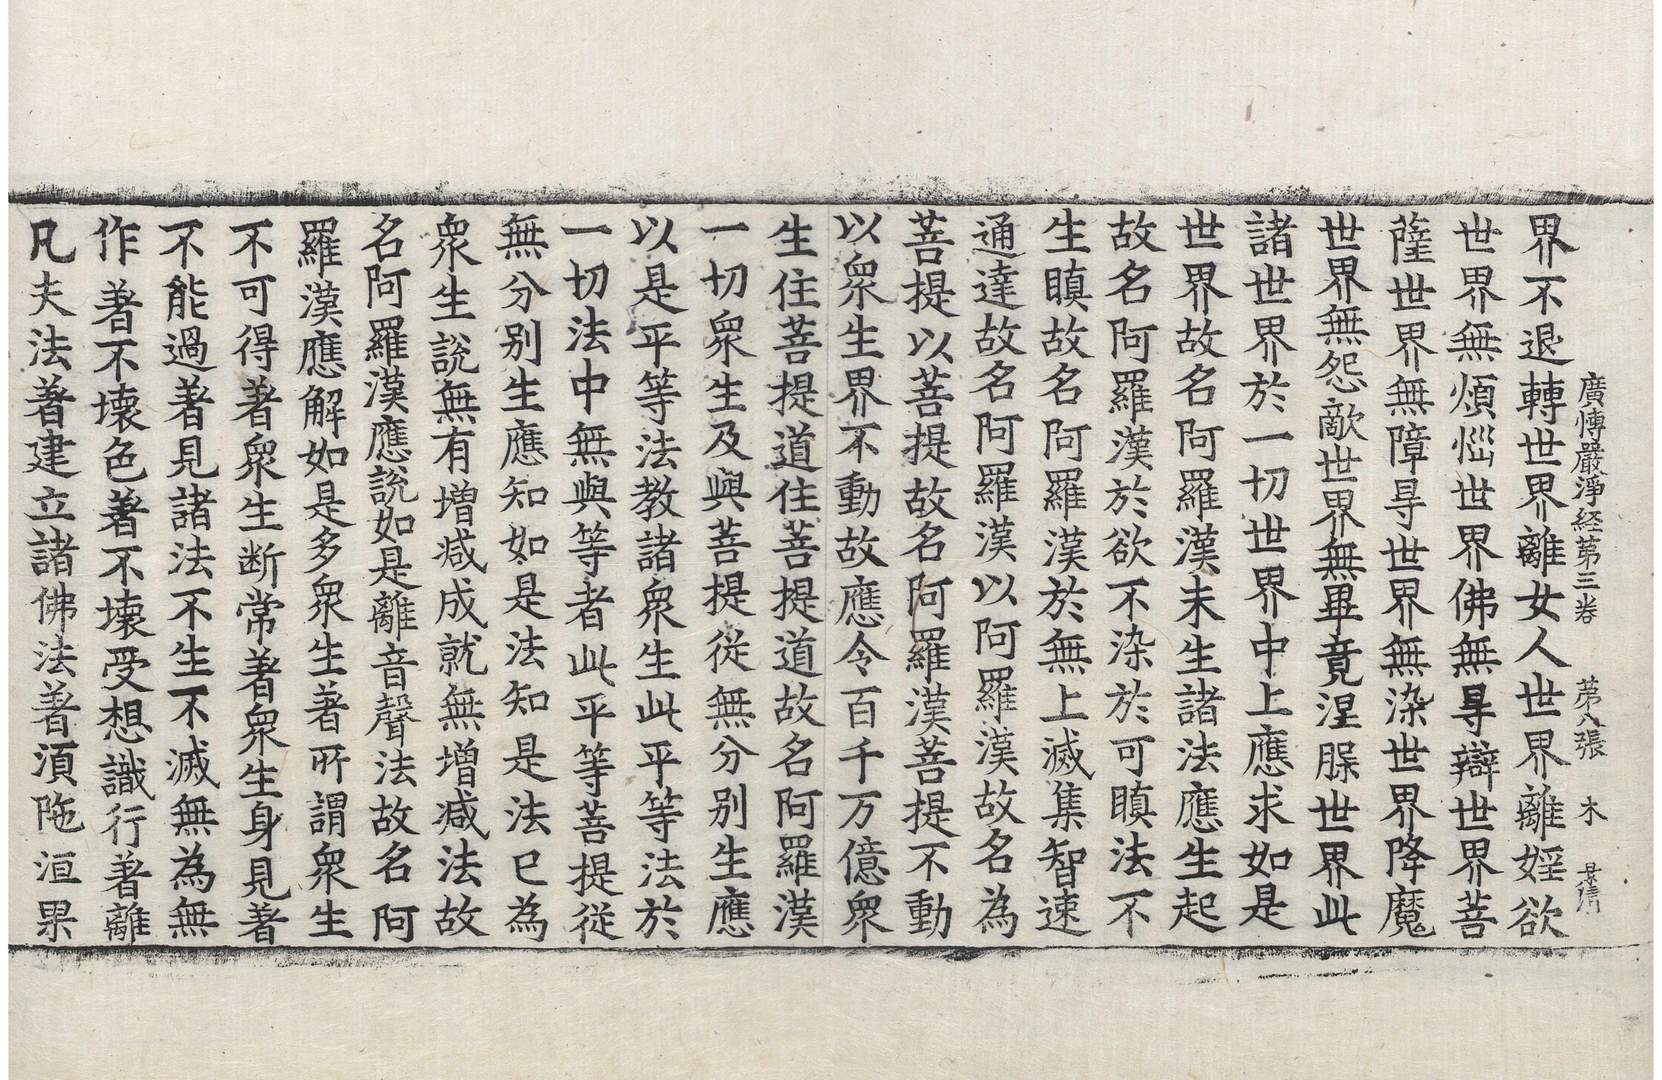 廣愽嚴淨経第三卷 第八張 木
界不退轉世界離女人世界離婬欲
世界無煩惱世界佛無㝵辯世界菩
薩世界無障㝵世界無染世界降魔
世界無怨敵世界無畢竟涅槃世界此
諸世界於一切世界中上應求如是
世界故名阿羅漢未生諸法應生起
故名阿羅漢於欲不染於可瞋法不
生瞋故名阿羅漢於無上滅集智速
通達故名阿羅漢以阿羅漢故名為
菩提以菩提故名阿羅漢菩提不動
以衆生界不動故應令百千万億衆
生住菩提道住菩提道故名阿羅漢
一切衆生及與菩提從無分別生應
以是平等法教諸衆生此平等法於
一切法中無與等者此平等菩提從
無分別生應知如是法知是法已為
衆生說無有增減成就無增減法故
名阿羅漢應說如是離音聲法故名阿
羅漢應解如是多衆生著所謂衆生
不可得著衆生断常著衆生身見著
不能過著見諸法不生不滅無為無
作著不壞色著不壞受想識行著離
凡夫法著建立諸佛法著湏陁洹果